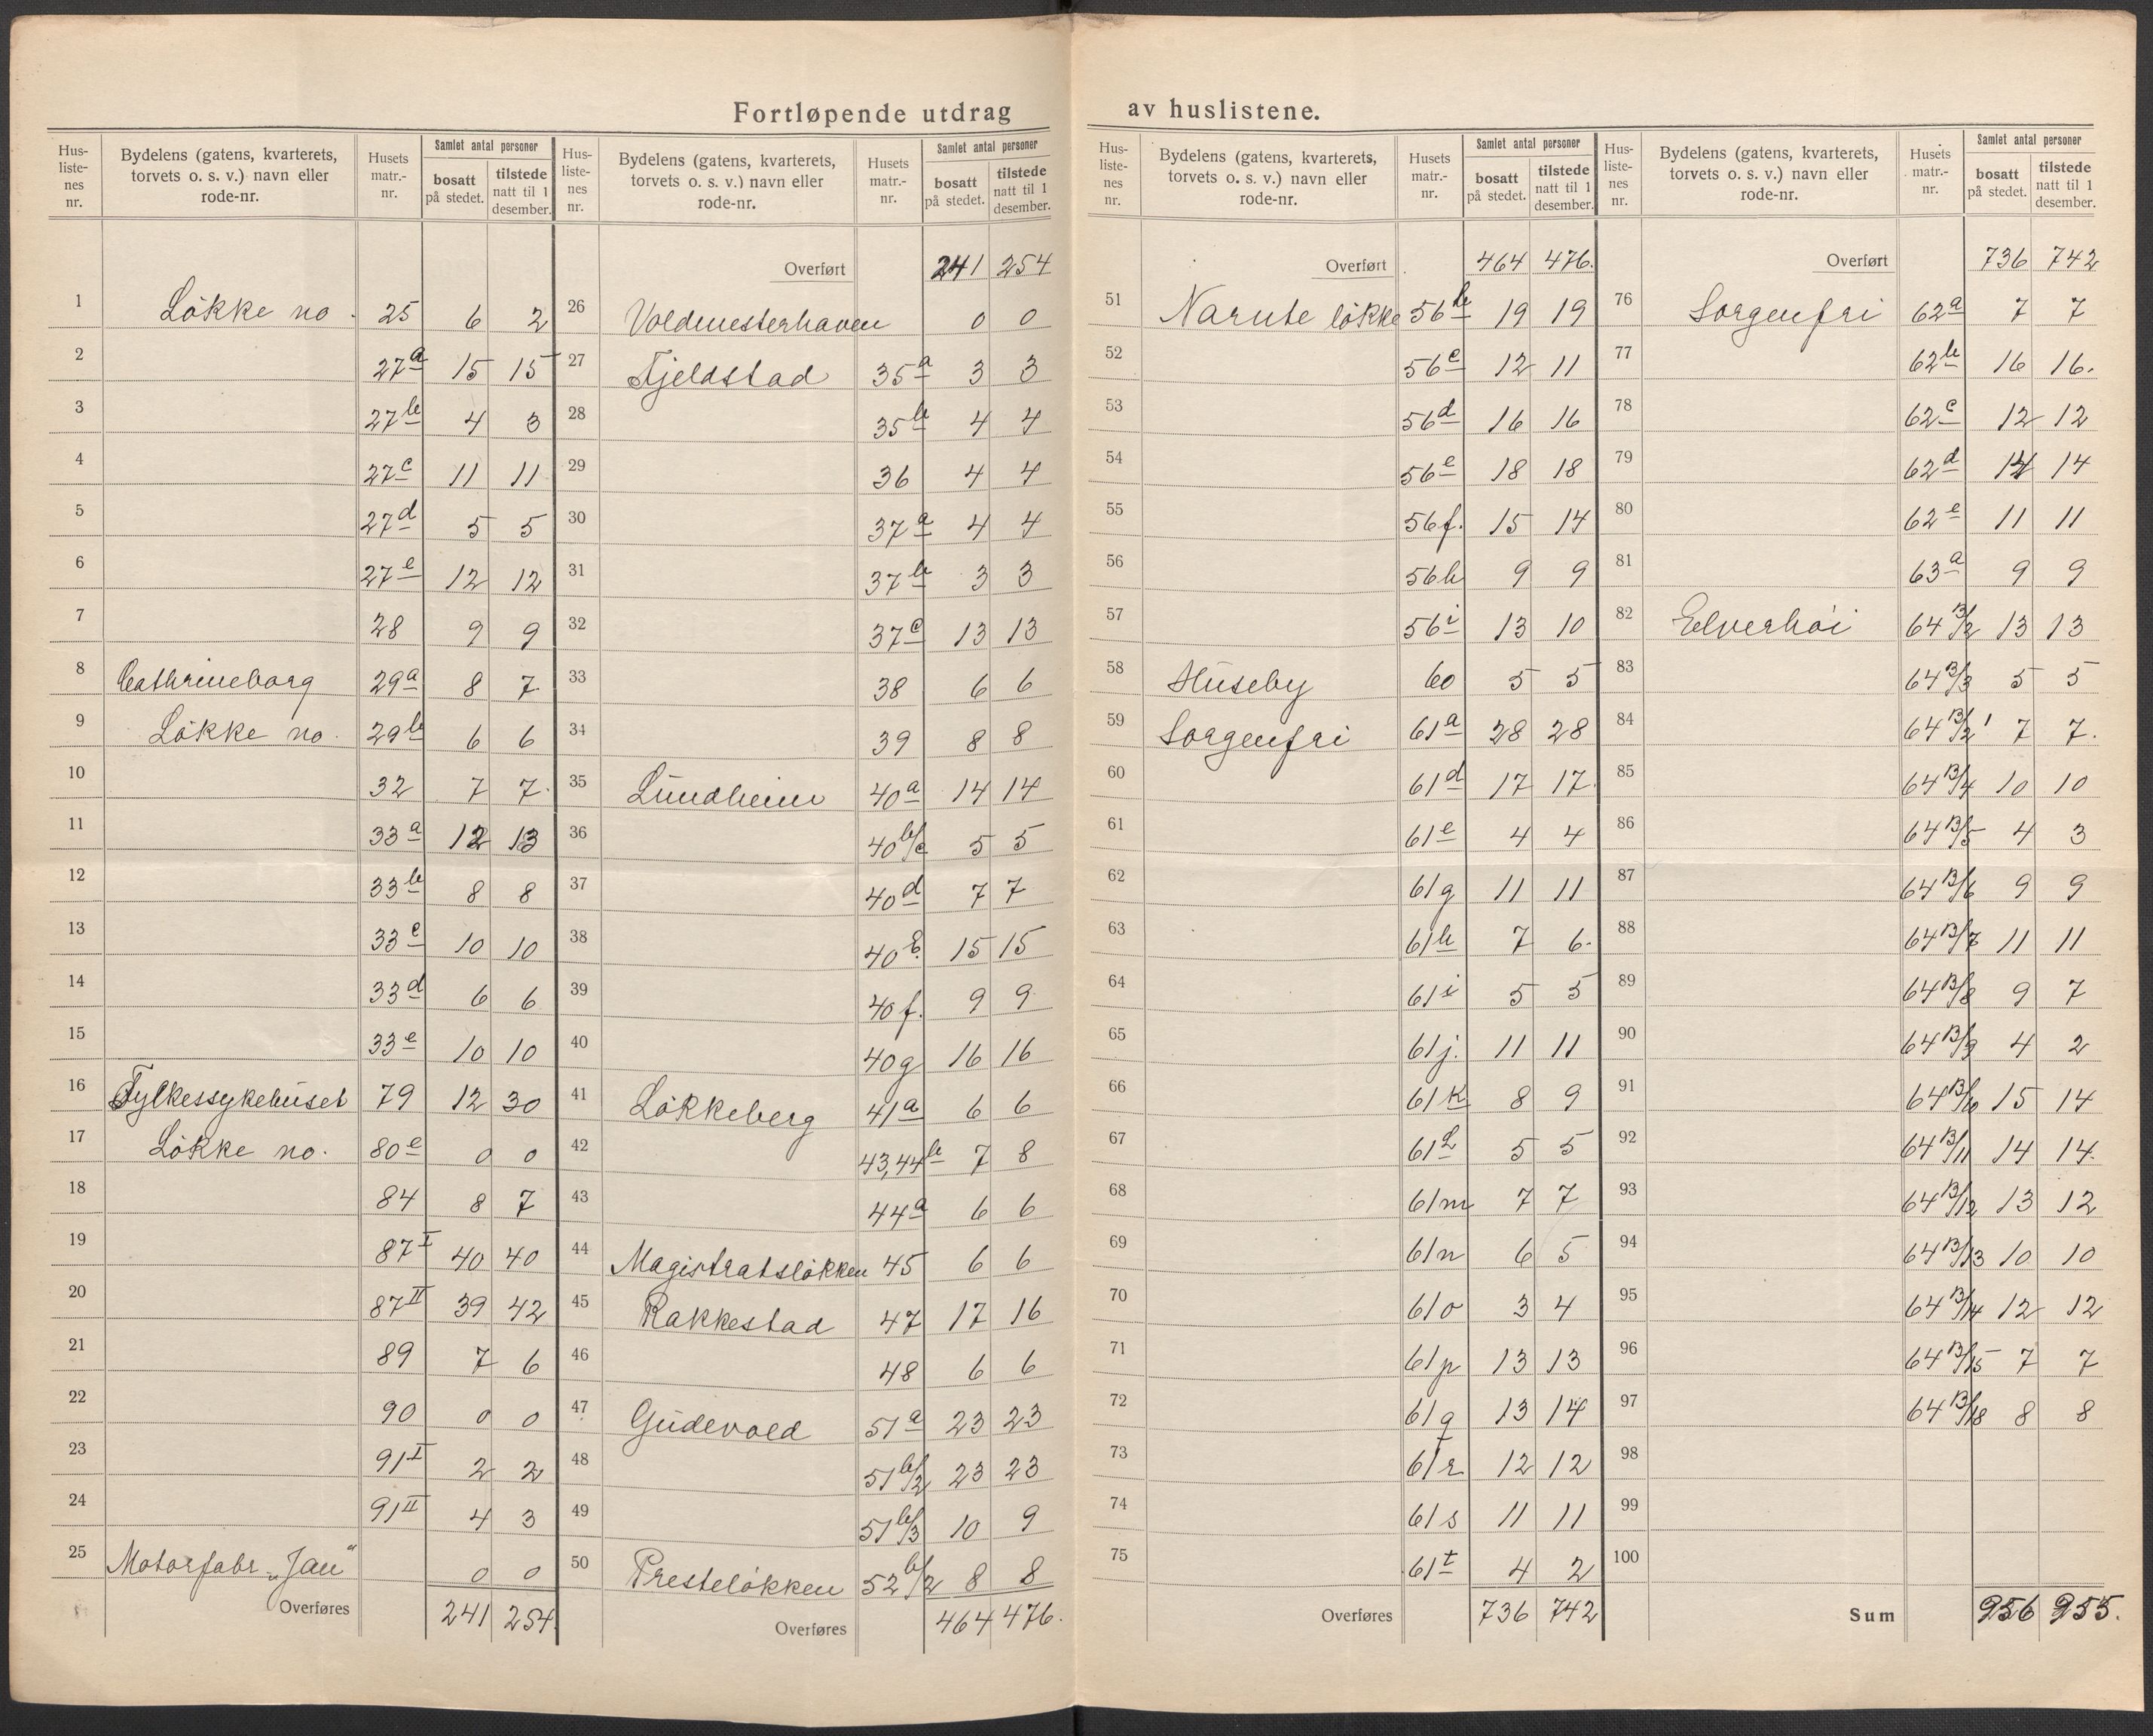 Fortløpende utdrag av huslistene.
Hus-liste-nes nr. | Bydelens (gatens, kvarterets, torvets o. s. v.) navn eller rode-nr. | Husets matr.-nr. | Samlet antal personer | bosatt på stedet. | tilstede natt til 1 desember.
1 Løkke no. 25 6 2
2 27a 15 15
3 27b 4 3
4 27c 11 11
5 27d 5 5
6 27e 12 12
7 28 9 9
8 Cathrineborg 29a 8 7
9 Løkke no. 29b 6 6
10 32 7 7
11 33a 12 13
12 33b 8 8
13 33c 10 10
14 33d 6 6
15 33e 10 10
16 Fylkessykehuset 79 12 30
17 Løkke no. 80e 0 0
18 84 8 7
19 87I 40 40
20 87II 39 42
21 89 7 6
22 90 0 0
23 91I 2 2
24 91II 4 3
25 Motorfabr. „Jan“ 0 0
Overføres 241 254
Hus-liste-nes nr. | Bydelens (gatens, kvarterets, torvets o. s. v.) navn eller rode-nr. | Husets matr.-nr. | Samlet antal personer | bosatt på stedet. | tilstede natt til 1 desember.
Overført 241 254
26 Voldmesterhaven 0 0
27 Fjeldstad 35a 3 3
28 35b 4 4
29 36 4 4
30 37a 4 4
31 37b 3 3
32 37c 13 13
33 38 6 6
34 39 8 8
35 Lundheim 40a 14 14
36 40b/c 5 5
37 40d 7 7
38 40e. 15 15
39 40f. 9 9
40 40g 16 16
41 Løkkeberg 41a 6 6
42 43,44b 7 8
43 44a 6 6
44 Magistratsløkken 45 6 6
45 Rakkestad 47 17 16
46 48 6 6
47 Gudevold 51a 23 23
48 51b/2 23 23
49 51b/3 10 9
50 Presteløkken 52b/2 8 8
Overføres 464 476.
Hus-liste-nes nr. | Bydelens (gatens, kvarterets, torvets o. s. v.) navn eller rode-nr. | Husets matr.-nr. | Samlet antal personer | bosatt på stedet. | tilstede natt til 1 desember.
Overført 464 476.
51 Narute løkke 56b 19 19
52 56c 12 11
53 56d 16 16
54 56e 18 18
55 56f. 15 14
56 56h 9 9
57 56i 13 10
58 Huseby 60 5 5
59 Sorgenfri 61a 28 28
60 61d 17 17
61 61e 4 4
62 61g 11 11
63 61h 7 6
64 61i 5 5
65 61j. 11 11
66 61k 8 9
67 61L 5 5
68 61m 7 7
69 61n 6 5
70 61o 3 4
71 61p 13 13
72 61q 13 14
73 61r 12 12
74 61s 11 11
75 61t 4 2
Overføres 736 742
Hus-liste-nes nr. | Bydelens (gatens, kvarterets, torvets o. s. v.) navn eller rode-nr. | Husets matr.-nr. | Samlet antal personer | bosatt på stedet. | tilstede natt til 1 desember.
Overført 736 742
76 Sorgenfri 62a 7 7
77 62b 16 16.
78 62c 12 12
79 62d 14 14
80 62e 11 11
81 63a 9 9
82 Elverhøi 64 B/2 13 13
83 64 B/3 5 5
84 64 B/2 1 7 7.
85 64 B/4 10 10
86 64 B/5 4 3
87 64 B/6 9 9
88 64 B/7 11 11
89 64 B/8 9 7
90 64 B/9 4 2
91 64 B/10 15 14
92 64 B/11 14 14
93 64 B/12 13 12
94 64 B/13 10 10
95 64 B/14 12 12
96 64 B/15 7 7
97 64 B/18 8 8
98
99
100
Sum 956 955.